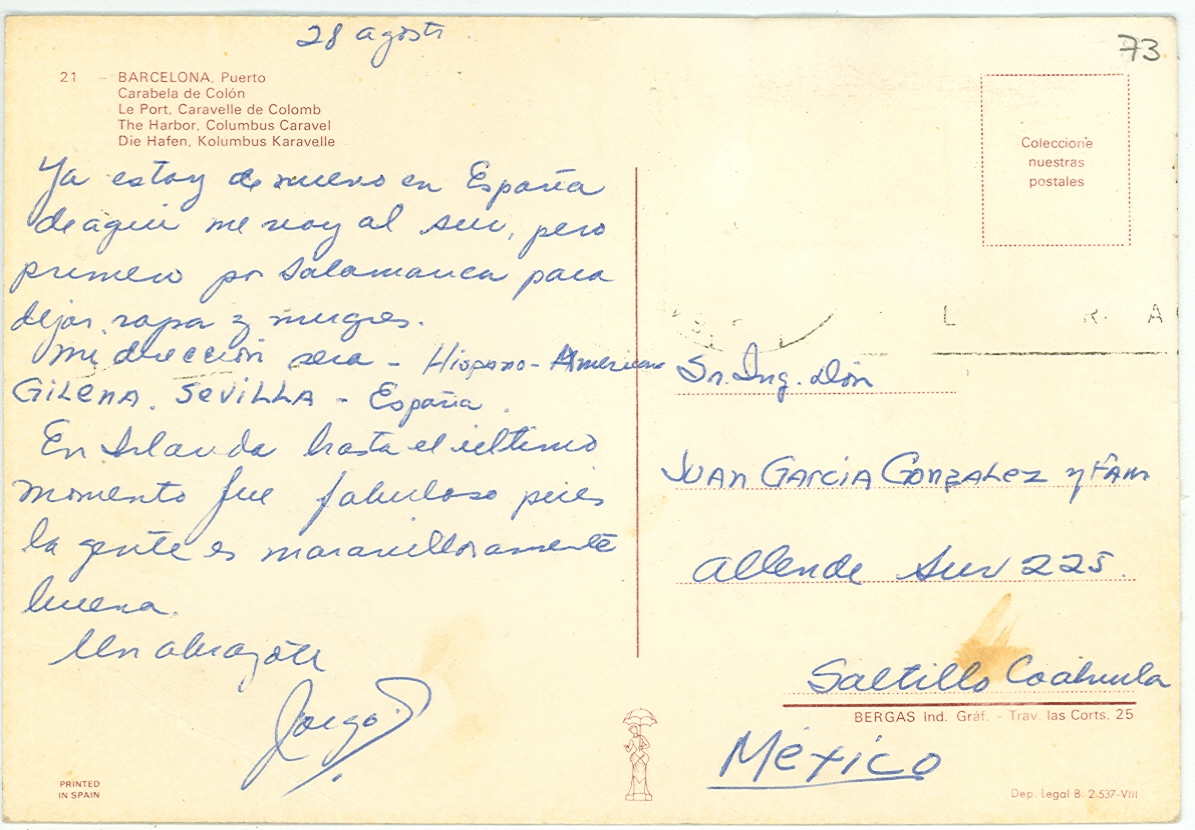 28 agosto
73
21 - BARCELONA, Puerto
Carabela de Colón
Le Port, Caravelle de Colomb
The Harbor, Columbus Caravel
Die Hafen, Kolumbus Karavelle
Coleccione
nuestras
postales
Ya estoy de nuevo en España
de aqui me voy al sur, pero
primero por Salamanca para
dejar ropa y mugres.
Mi dirección sera - Hispano-Americano
GILENA. SEVILLA - España.
En Irlanda hasta el ultimo
momento fue fabuloso pues
la gente es maravillosamente
buena.
Un abrazote
Jorge
L R. A
Sr. Ing. Don
JUAN GARCIA GONZALEZ y FAM
Allende Sur 225.
Saltillo Coahuila
BERGAS Ind. Gráf. - Trav. las Corts, 25
México
PRINTED
IN SPAIN
Dep. Legal B. 2-537-VIII